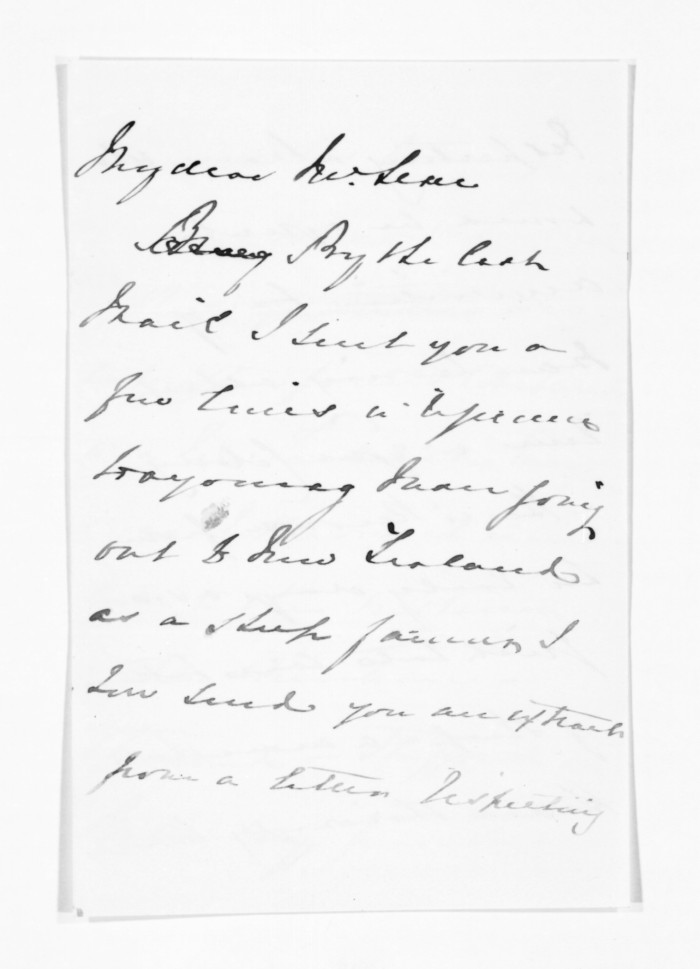 My dear Mr. Lean
By the last
Mail I sent you a
few lines in reference
to a young Man going
out to New Zealand
as a sheep farmer I
now send you an extract
from a letter respecting